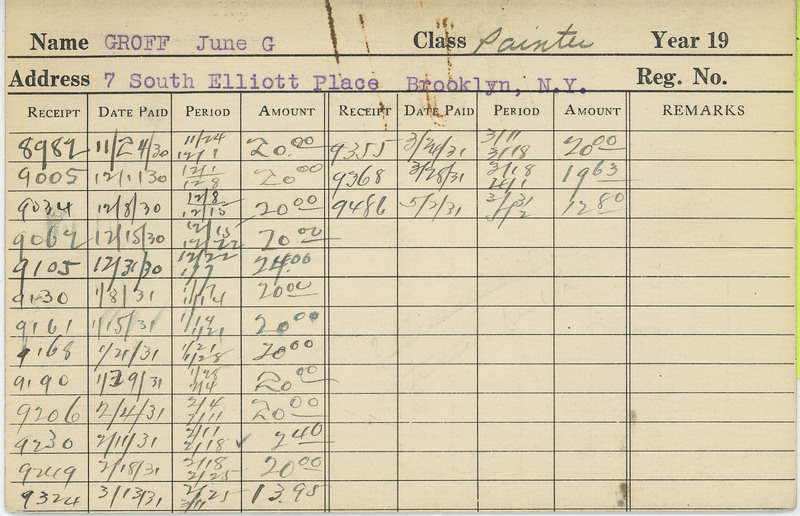 Name GROFF June G Class Painter Year 19
Address 7 South Elliott Place Brooklyn, N.Y. Reg. No.
RECEIPT DATE PAID PERIOD AMOUNT RECEIPT DATE PAID PERIOD AMOUNT REMARKS
8982 11/24/30 11/24 12/1 20.00 9355 3/24/31 3/11 3/18 20.00
9005 12/1/30 12/1 12/8 20.00 9368 3/28/31 3/18 19.63
9034 12/8/30 12/8 12/15 20.00 9486 5/2/31 12.80
9062 12/15/30 12/15 12/22 20.00
9105 12/31/30 12/22 1/7 24.00
9130 1/8/31 1/7 1/14 20.00
9161 1/15/31 1/14 1/21 20.00
9168 1/21/31 1/21 1/28 20.00
9190 1/29/31 1/28 2/4 20.00
9206 2/4/31 2/4 2/11 20.00
9230 2/11/31 2/11 2/18 ✓ 2.40
9249 2/18/31 2/18 2/25 20.00
9324 3/13/31 2/25 3/11 13.95